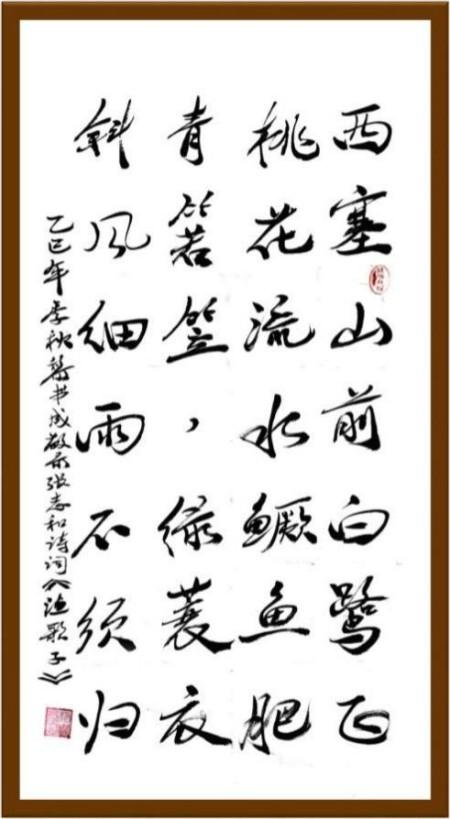 西塞山前白鹭飞
桃花流水鳜鱼肥
青箬笠，绿蓑衣
斜风细雨不须归
乙巳年季秋书成敬张志和诗词《渔歌子》